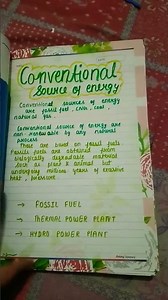 Conventional
Source of energy
Conventional sources of energy
are fossil fuel, coal,
natural gas.
Conventional source of energy are
non renewable by any natural
process.
These are based on fossil fuels
Fossils fuels are obtained from
biologically degradable material
such as plant & animal but
undergoing millions years of
heat, pressure
→ FOSSIL FUEL
→ THERMAL POWER PLANT
→ HYDRO POWER PLANT